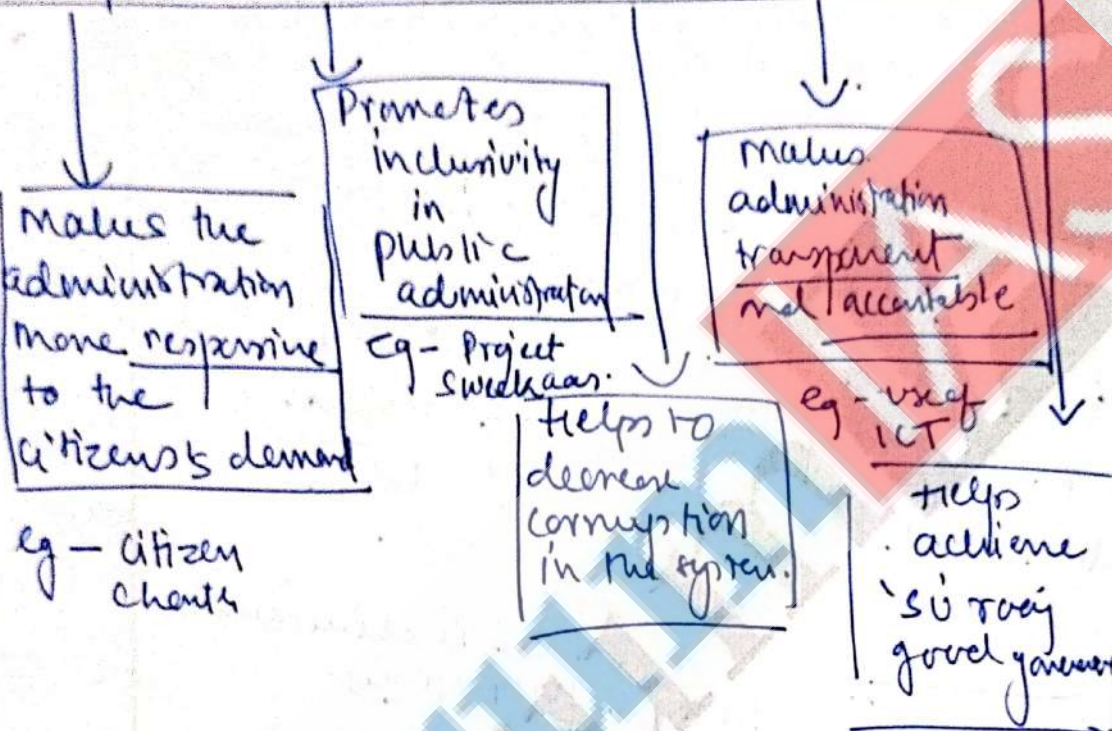 makes the
administration
more responsive
to the
citizens's demand
eg - citizen
charter
Promotes
inclusivity
in
public
administration
eg - Project
Helps to
decrease
corruption
in the system.
makes
administration
transparent
and accountable
eg - use of
ICT
Helps
achieve
'su raaj
good
IAS